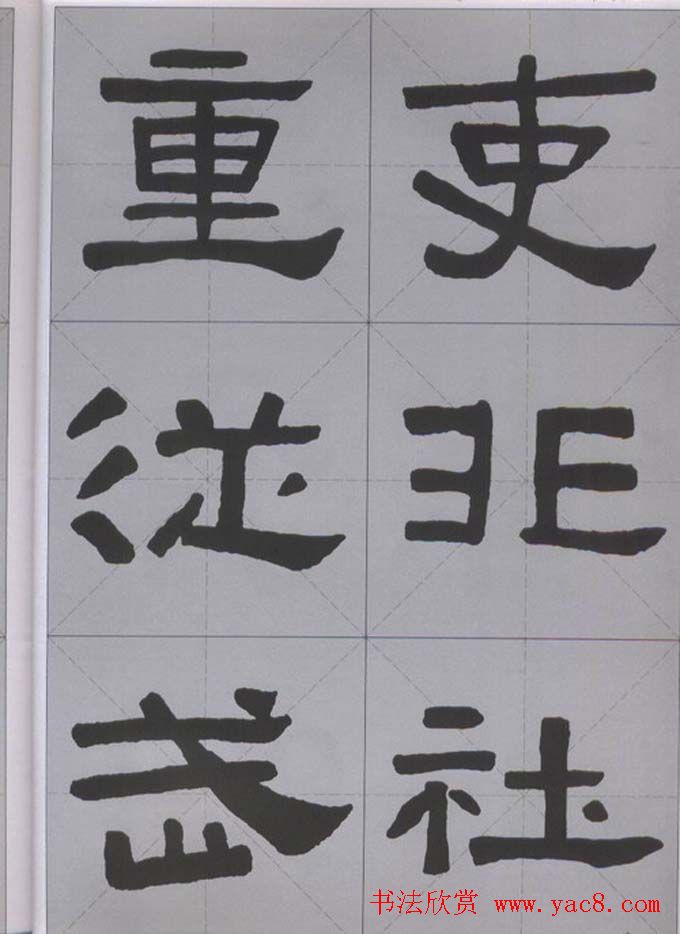 吏非社
重從武
书法欣赏 www.yac8.com